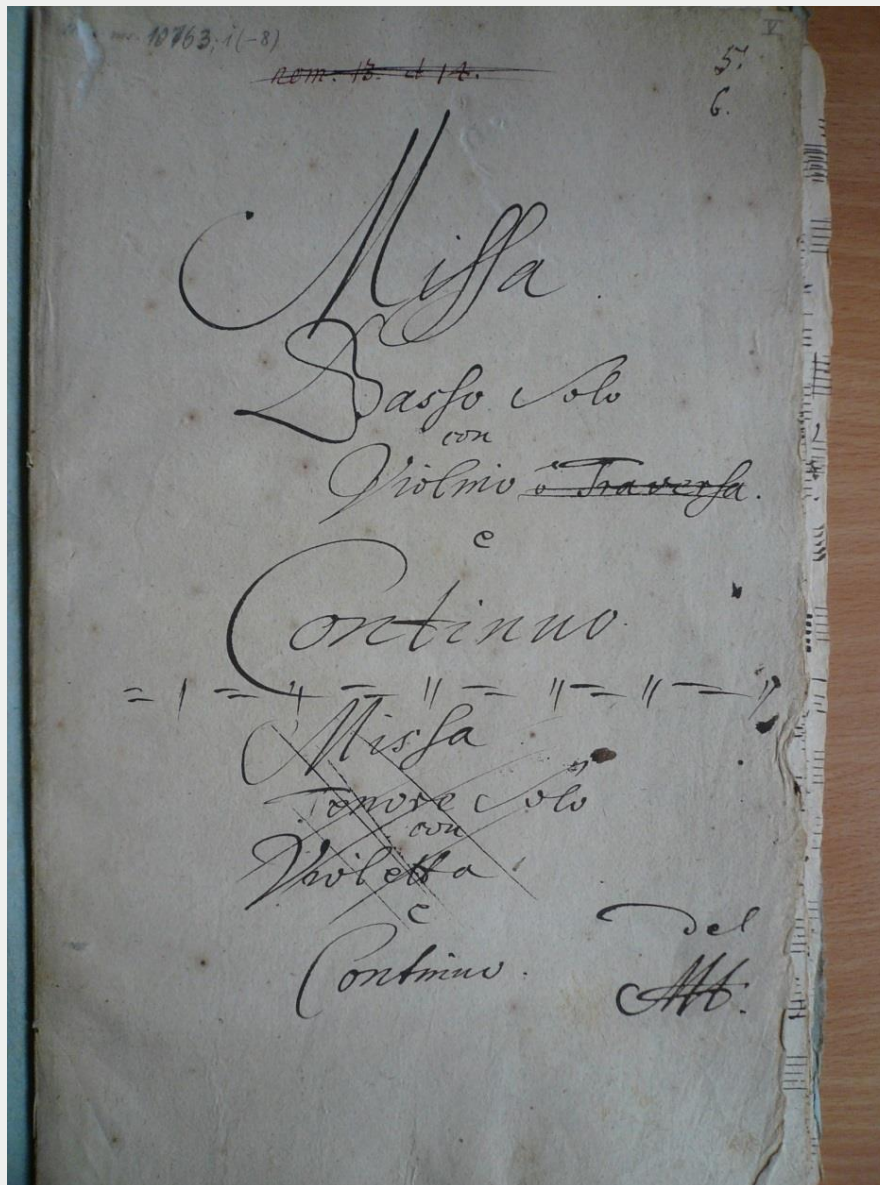 Mus. ms. 10763, 1(-8)
V
nom. 13. et 14.
5.
6.
Missa
Basso Solo
con
Violino ô Traversa.
e
Continuo
= | = || = || = || = || = ||
Missa
Tenore Solo
con
Violetta
e
Continuo.
del